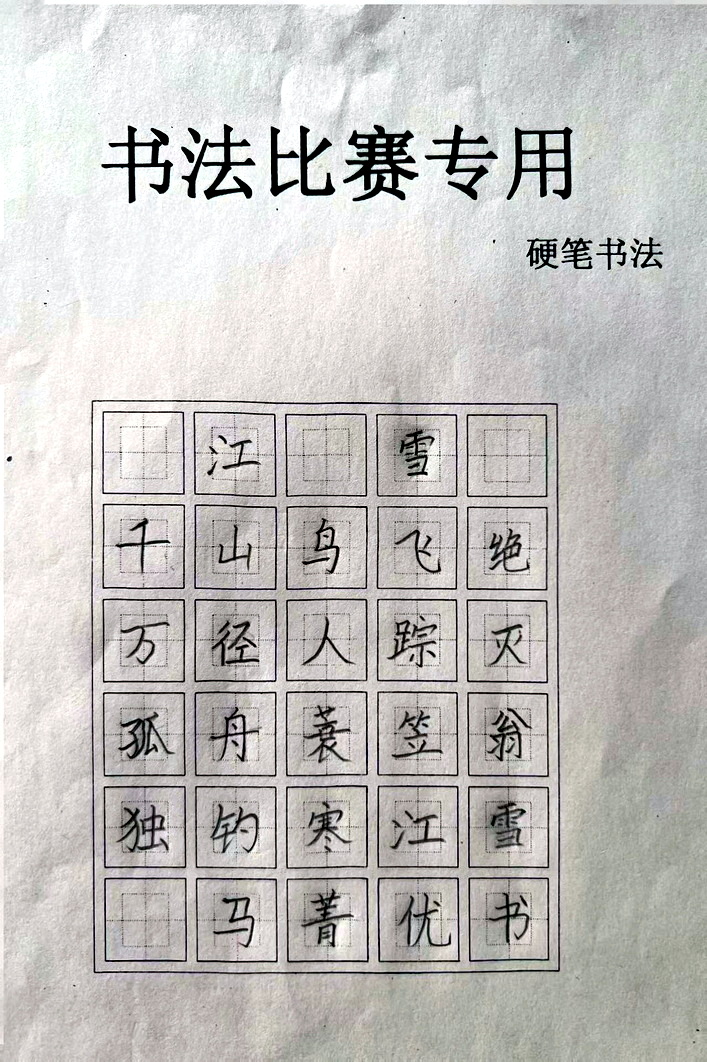 书法比赛专用
硬笔书法
江雪
千山鸟飞绝
万径人踪灭
孤舟蓑笠翁
独钓寒江雪
马菁优书